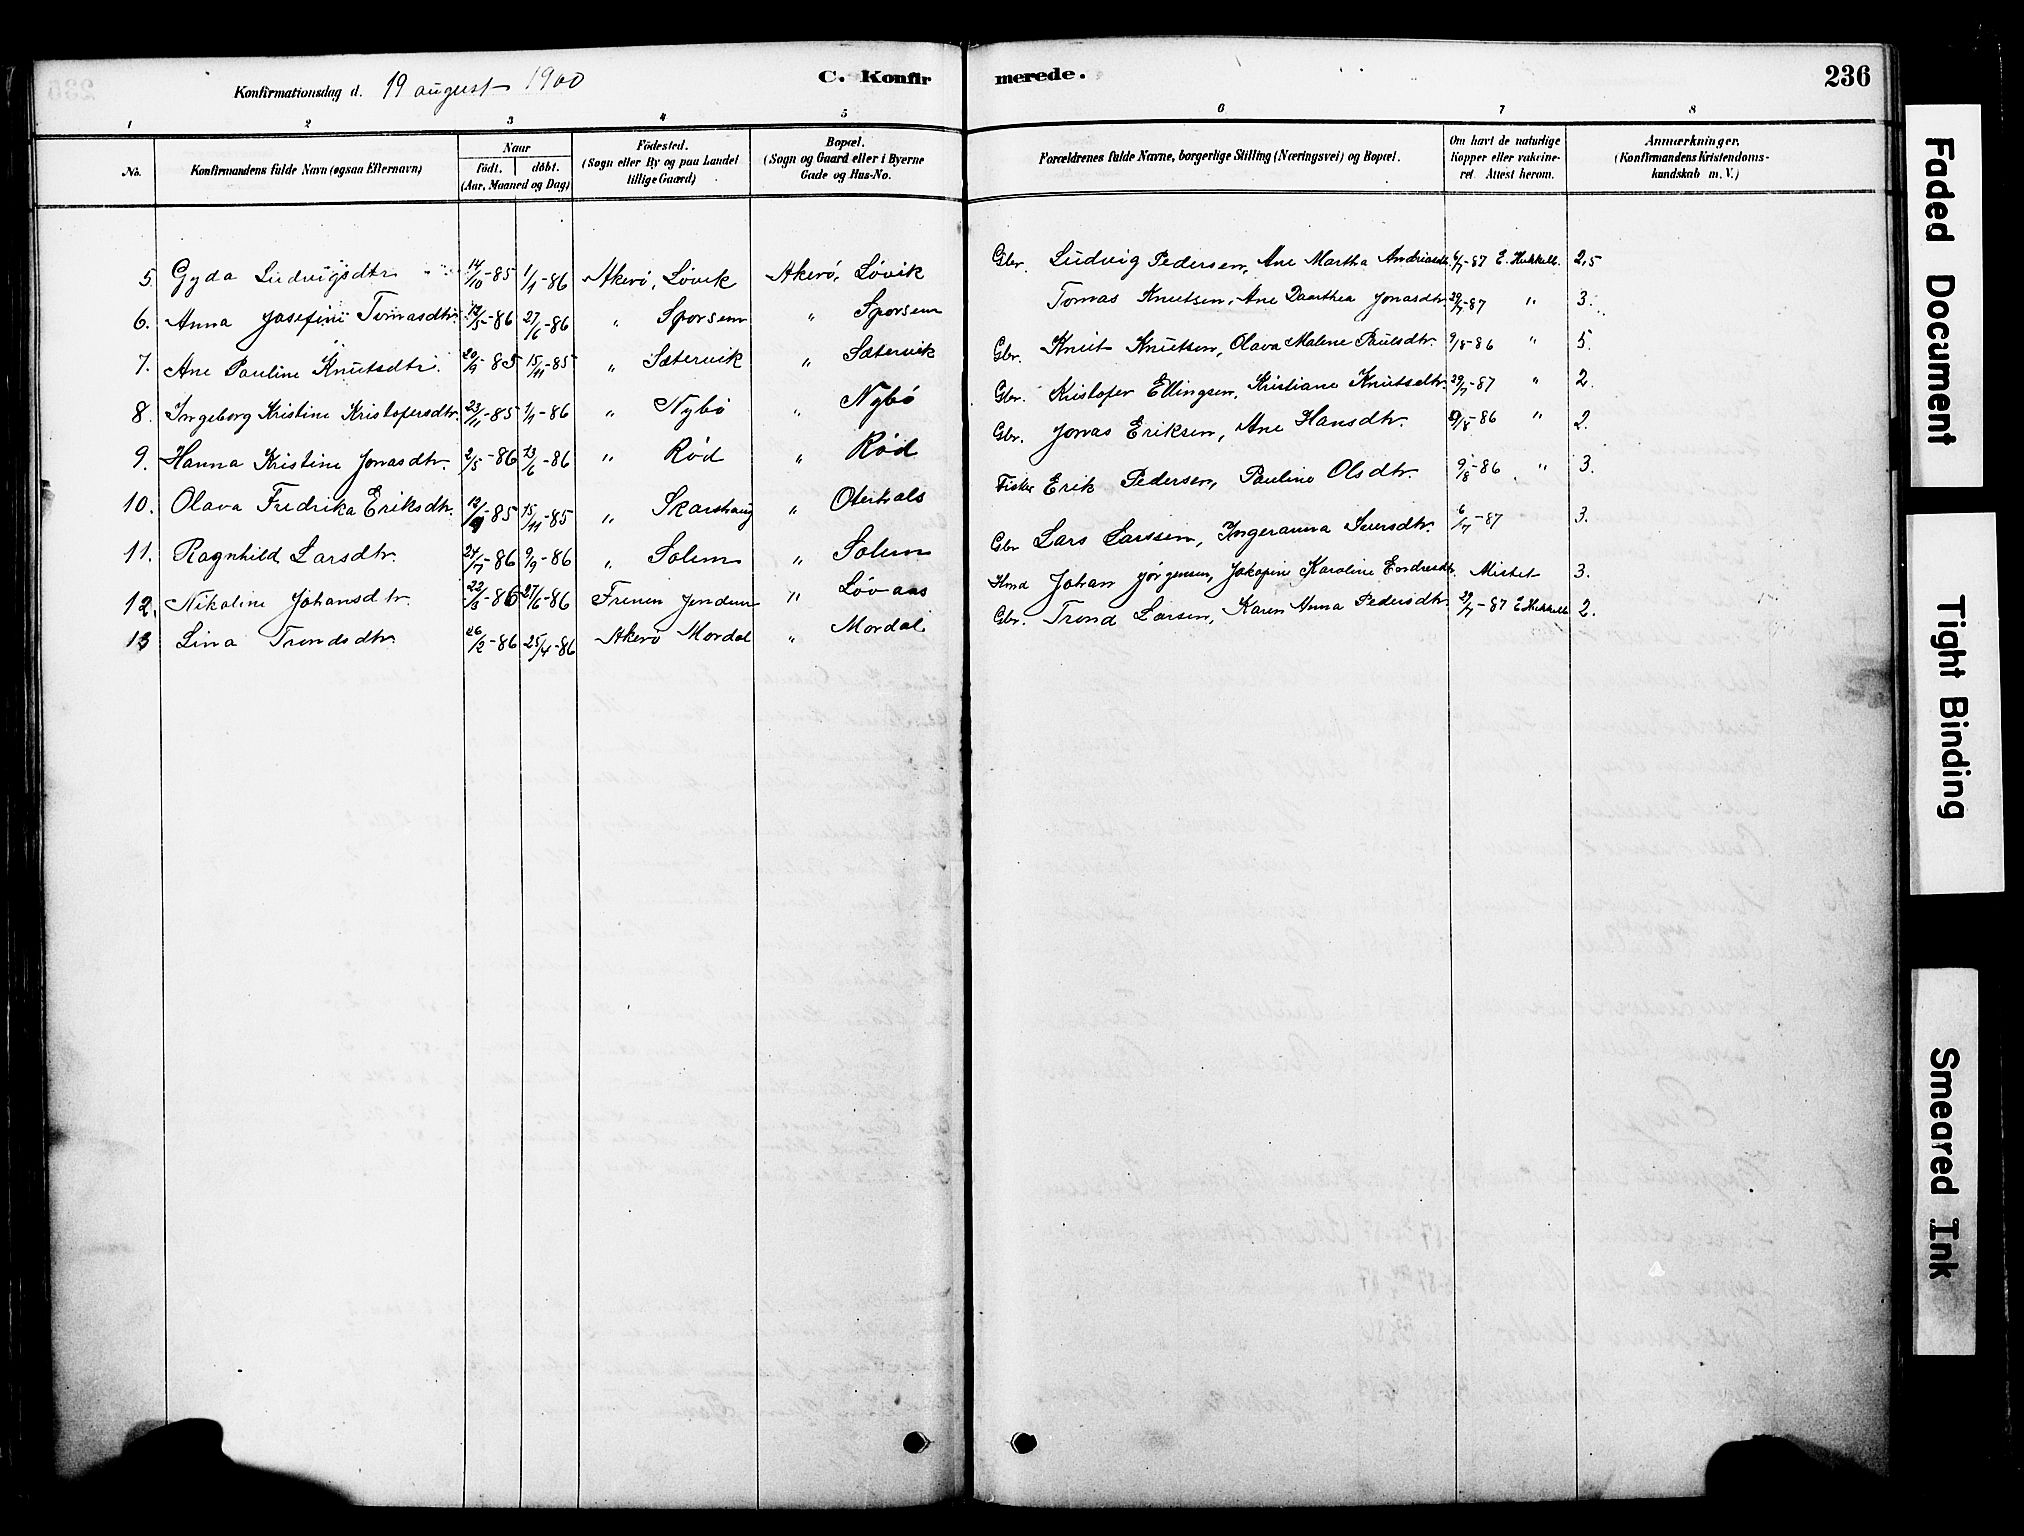 Konfirmationsdag d. 19 august 1900 C. Konfirmerede. 236
1 2 3 4 5 6 7 8
No. Konfirmandens fulde Navn (ogsaa Efternavn) Naar Födt. döbt. (Aar, Maaned og Dag) Födested. (Sogn eller By og paa Landet tillige Gaard) Bopæl. (Sogn og Gaard eller i Byerne Gade og Hus-No. Forældrenes fulde Navne, borgerlige Stilling (Næringsvei) og Bopæl. Om havt de naturlige Kopper eller vaccineret. Attest herom. Anmærkninger. (Konfirmandens Kristendomskundskab m. V.)
5. Gyda Ludvigsdtr. 14/10-85 1/1-86 Akerö, Lövik Akerö, Lövik Gbr. Ludvig Pedersen, Ane Martha 6/7-87 2,5
6. Anna Josefine Tomasdtr. 12/5-86 27/6-86 " Sporsem " Sporsem Tomas Knutsen, Ane Daarthea Jonasdtr. 29/7-87 " 3.
7. Ane Pauline Knutsdtr. 20/9-85 15/11-85 " Sætervik " Sætervik Gbr. Knut Knutsen, Olava Malene Paulsdtr. 9/8-86 " 5.
8. Ingeborg Kristine Kristofersdtr. 23/11-85 1/1-86 " Nybö " Nybö Gbr. Kristofer Ellingsen, Kristiane Knutsdtr. 29/7-87 " 2.
9. Hanna Kristine Jonasdtr. 2/5-86 13/6-86 " Röd " Röd Gbr. Jonas Eriksen, Ane Hansdtr. 9/8-86 " 2.
10. Olava Fredrika Eriksdtr. 85 15/11-85 " Skarshaug " Oterhals Fisker Erik Pedersen, Pauline Olsdtr. 9/8-86 " 3.
11. Ragnhild Larsdtr. 24/7-86 9/9-86 " Solem " Solem Gbr Lars Larssen, Ingeranna Iversdtr. 6/7-87 3.
12. Nikoline Johansdtr. 22/3-86 27/6-86 Frenen Jendem " Lövaas Hmd Johan Jörgensen, Jakopine Karoline Endresdtr. Mistet 3.
13 Lina Trondsdtr. 26/2-86 25/4-86 Akerö Mordal " Mordal Gbr. Trond Larsen, Karen Anna Pedersdtr. 29/7-87 2.
Faded Document
Tight Binding
Smeared Ink